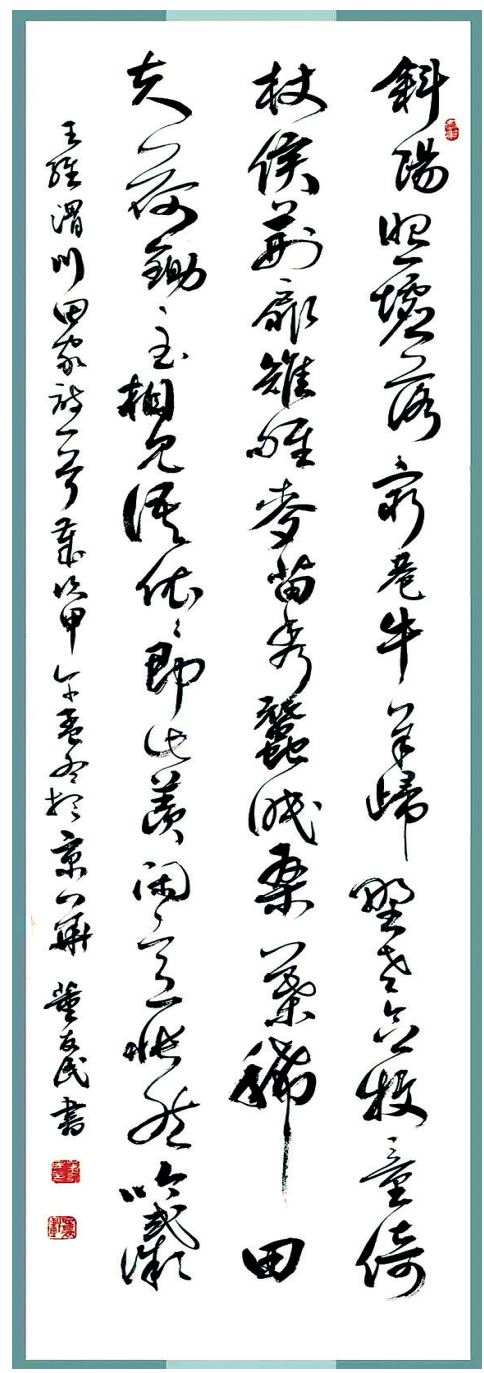 斜陽照墟落窮巷牛羊歸野老念牧童倚
杖候荆扉雉雊麥苗秀蠶眠桑葉稀田
夫荷鋤至相見語依依即此羨閑逸悵然吟式微
王維渭川田家詩一首歲次甲午孟冬於京華董友民書